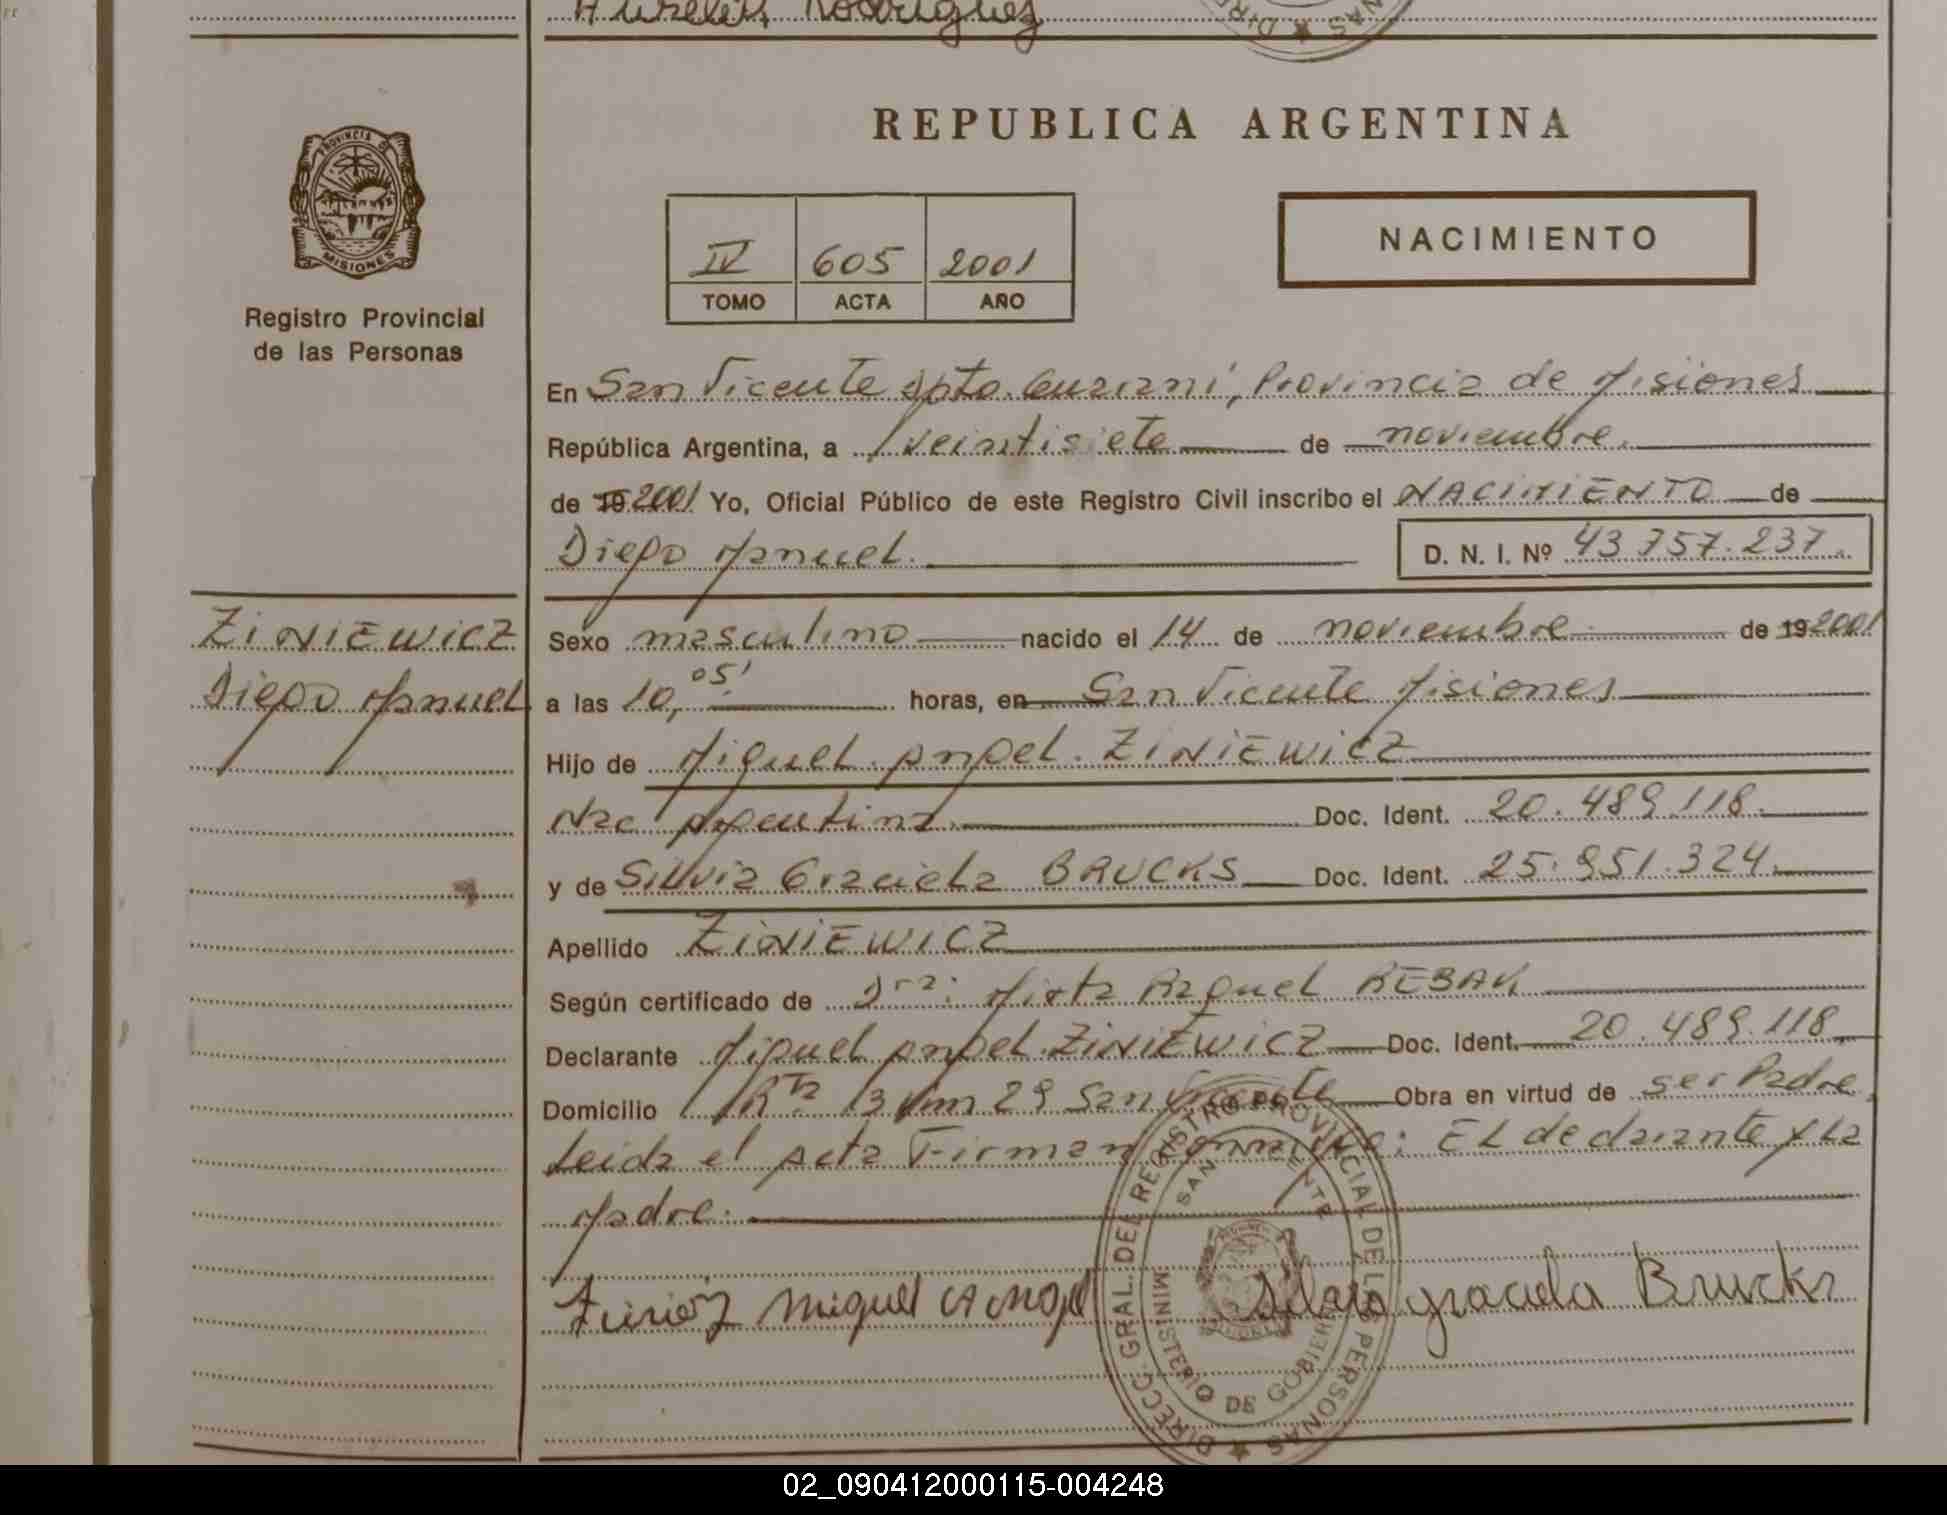 Aurelio Rodriguez
PROVINCIA DE
MISIONES
Registro Provincial
de las Personas
REPUBLICA ARGENTINA
IV 605 2001
TOMO ACTA AÑO
NACIMIENTO
En San Vicente Dpto. Guarani, Provincia de Misiones
República Argentina, a veintisiete de noviembre.
de 19 2001 Yo, Oficial Público de este Registro Civil inscribo el NACIMIENTO de
Diego Manuel. D. N. I. Nº 43.757.237.
ZINIEWICZ
Diego Manuel
Sexo masculino nacido el 14 de noviembre de 19 2001
a las 10,05' horas, en San Vicente Misiones
Hijo de Miguel Angel. ZINIEWICZ
Nac Argentina. Doc. Ident. 20.489.118.
y de Silvia Graciela BRUCKS Doc. Ident. 25.951.324.
Apellido ZINIEWICZ
Según certificado de Dra: Mirta Raquel REBAK
Declarante Miguel Angel ZINIEWICZ Doc. Ident. 20.489.118.
Domicilio Rta 13 Km 29 San Vicente Obra en virtud de ser Padre,
Leida el Acta Firman conmigo: EL declarante y La
Madre.
Miguel Angel Silvia graciela Brucks
DIRECC. GRAL. DEL REGISTRO PROVINCIAL DE LAS PERSONAS
SAN VICENTE
MINISTERIO DE GOBIERNO
02_090412000115-004248